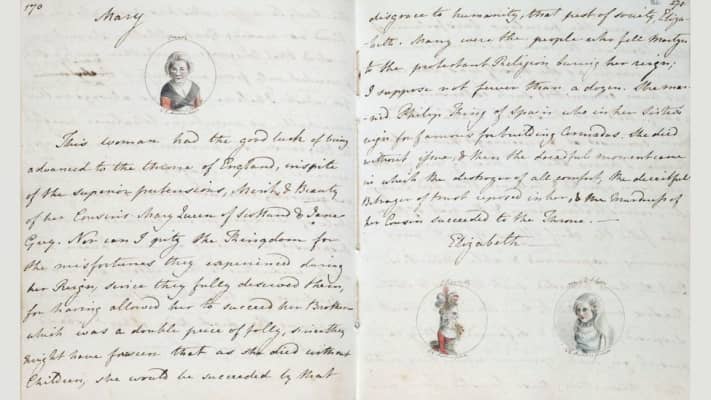 170
Mary
This woman had the good luck of being
advanced to the throne of England, inspite
of the superior pretensions, Merit & Beauty
of her Cousins Mary Queen of Scotland & Jane
Grey. Nor can I pity the Kingdom for
the misfortunes they experienced during
her Reign, since they fully deserved them,
for having allowed her to succeed her Brother—
which was a double peice of folly, since they
might have foreseen that as she died without
Children, she would be succeeded by that
disgrace to humanity, that pest of society, Eliza-
beth. Many were the people who fell Martyrs
to the protestant Religion during her reign;
I suppose not fewer than a dozen. She mar-
ried Philip King of Spain who in her Sister's
reign for famous for building Armadas. She died
without issue, & then the dreadful moment came
in which the destroyer of all comfort, the deceitful
Betrayer of trust reposed in her, & the Murderess of
her Cousin succeeded to the Throne.—
Elizabeth—